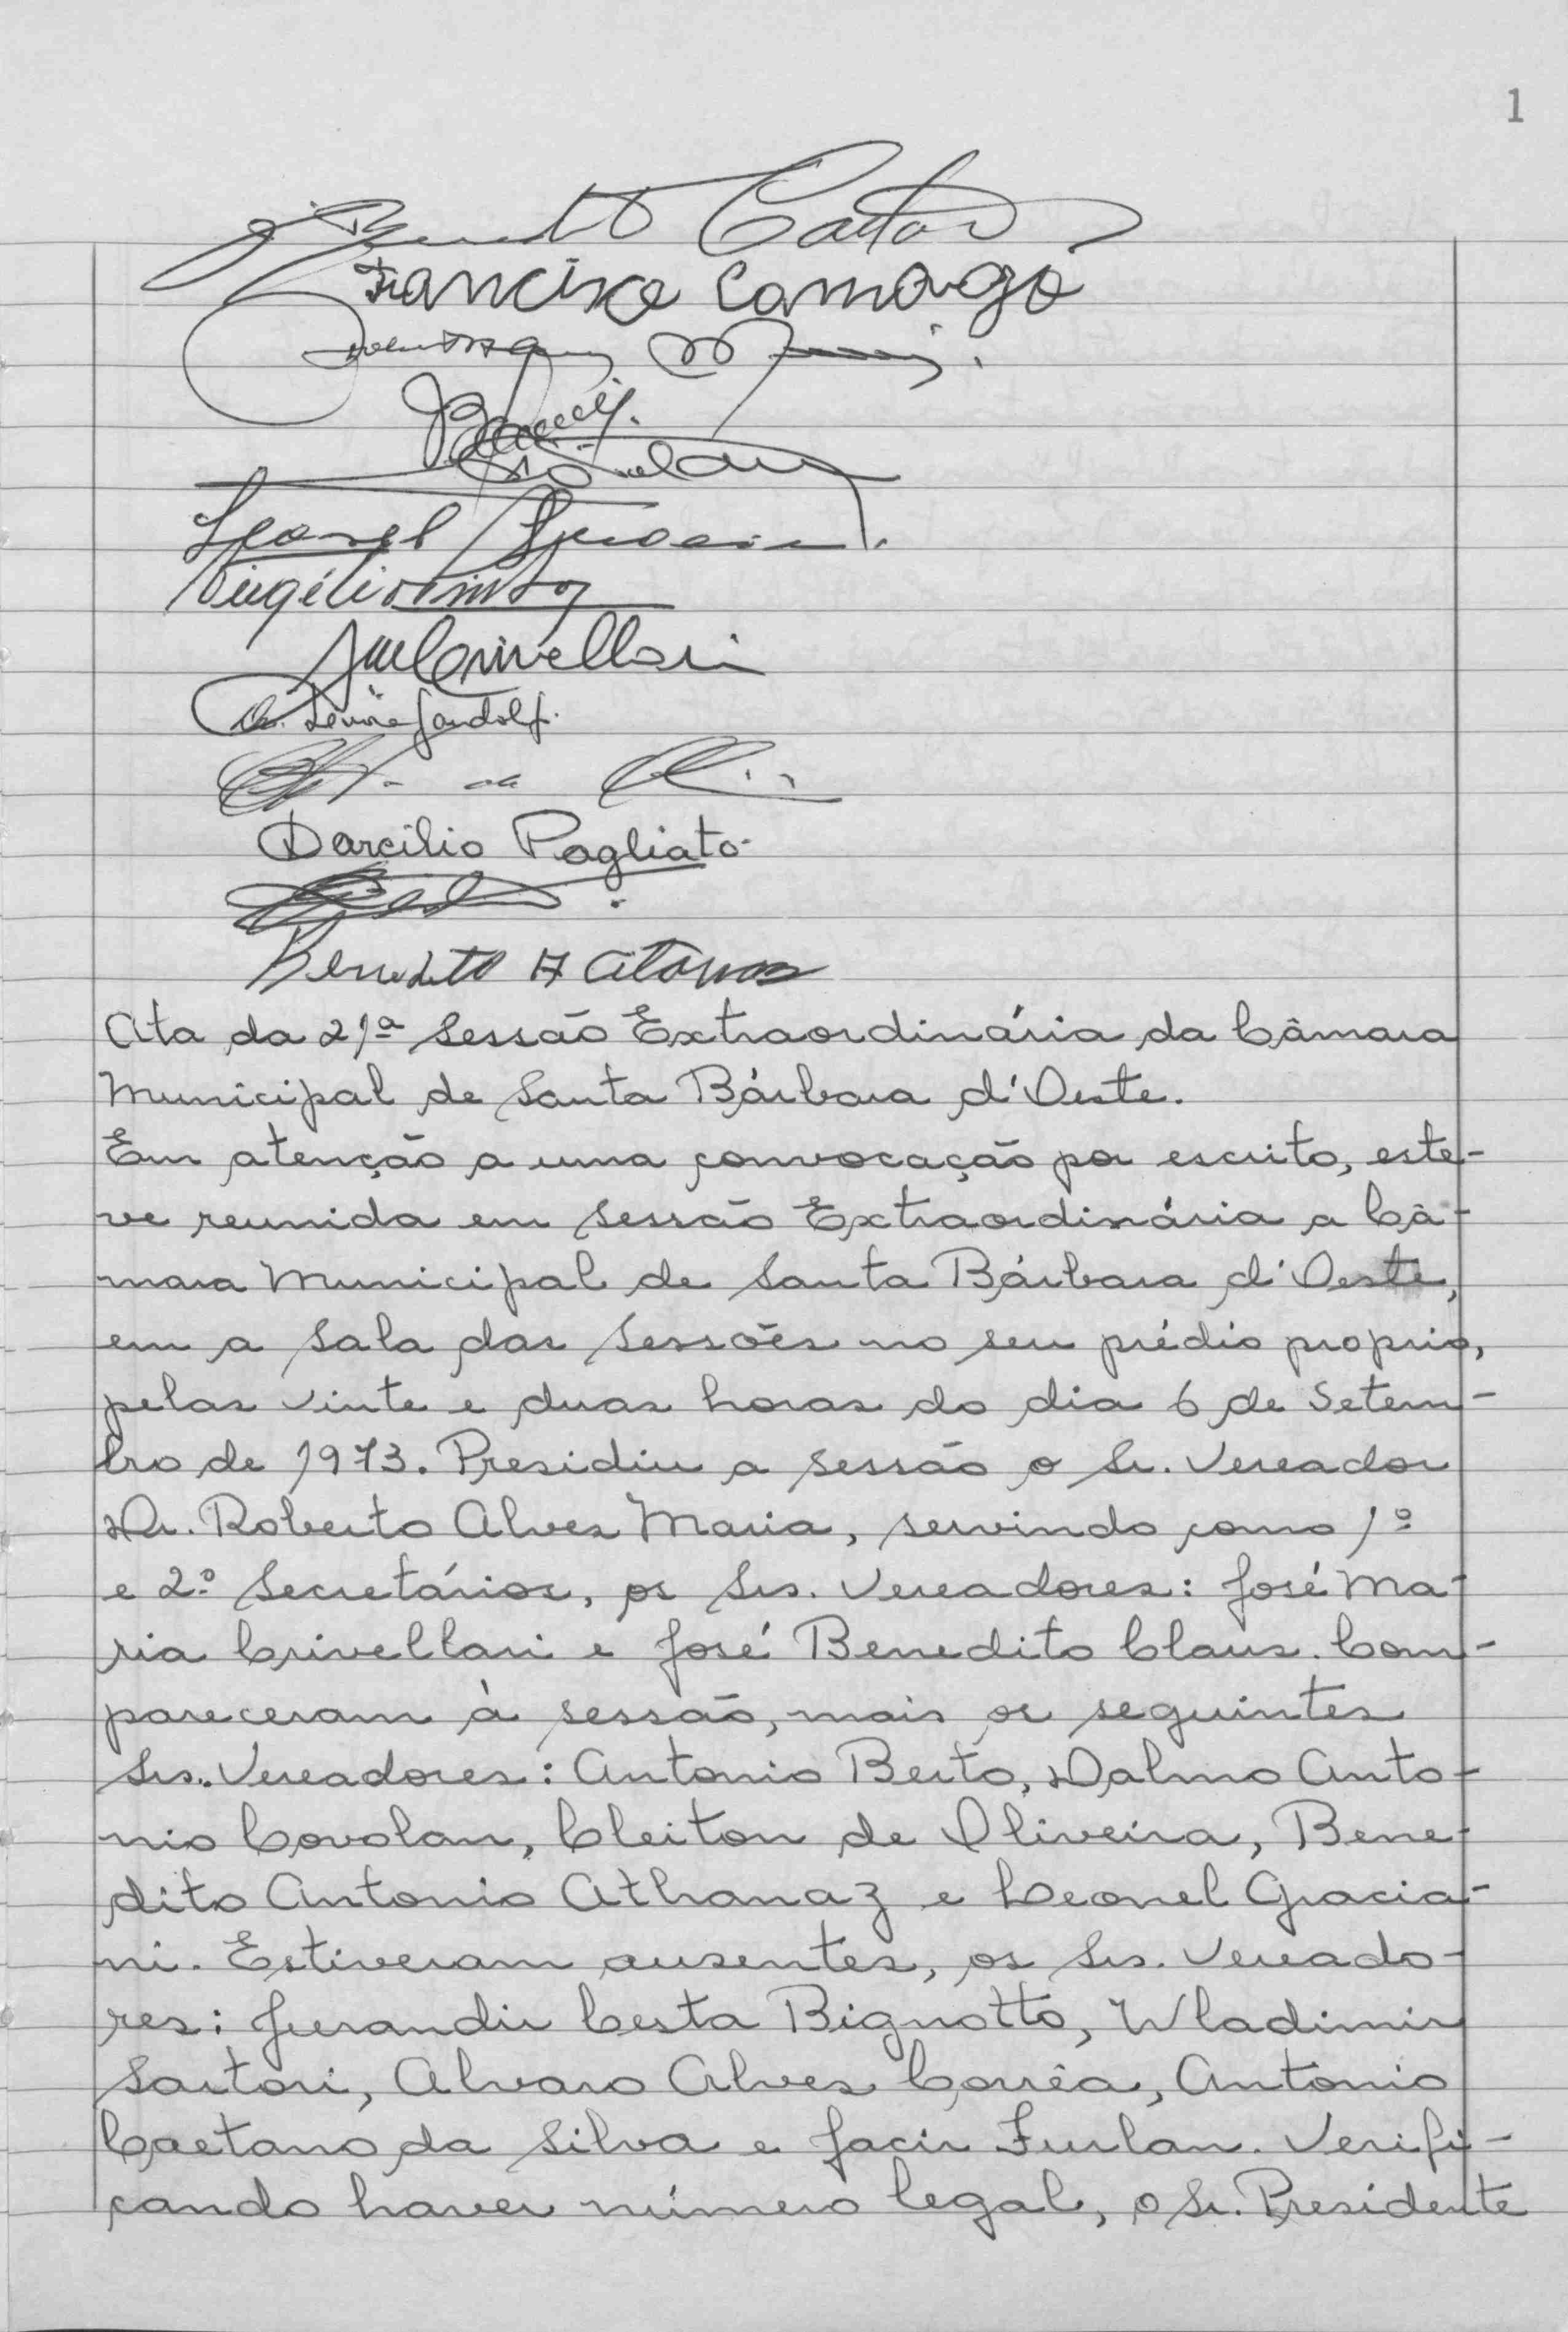 1
Francisco Camargo
Leonel
Virgélio
Crivellari
Darcilio Pagliato
Benedito A
Ata da 21ª Sessão Extraordinária da Câmara
Municipal de Santa Bárbara d'Oeste.
Em atenção a uma convocação por escrito, este-
ve reunida em Sessão Extraordinária a Câ-
mara Municipal de Santa Bárbara d'Oeste,
em a sala das Sessões no seu prédio proprio,
pelas vinte e duas horas do dia 6 de Setem-
bro de 1973. Presidiu a sessão o Sr. Vereador
Dr. Roberto Alves Maria, servindo como 1º
e 2º Secretários, os Srs. Vereadores: José Ma-
ria Crivellari e José Benedito Claus. Com-
pareceram à sessão, mais os seguintes
Srs. Vereadores: Antonio Berto, Dalmo Anto-
nio Covolan, Cleiton de Oliveira, Bene-
dito Antonio Athanaz e Leonel Gracia-
ni. Estiveram ausentes, os Srs. Vereado-
res: Jurandir Cesta Bignotto, Wladimir
Sartori, Alvaro Alves Corrêa, Antonio
Caetano da Silva e Jacir Furlan. Verifi-
cando haver número legal, o Sr. Presidente